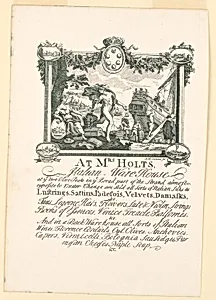 AT Mrs HOLTS,
Italian Ware House
at ye two Olive Posts in ye Broad part of the Strand almost
opposite to Exeter Change are sold all Sorts of Italian Silks as
Lustrings, Sattins, Padesois, Velvets, Damasks,
Fans, Legorne Hats, Flowers, Lute & Violin Strings
Books of Essences, Venice Treacle, Balsomes,
&c
And in a Back Ware house all Sorts of Italian
Wines, Florence Cordials, Oyl, Olives, Anchovies,
Capers, Vermicelli, Bolognia Sausidges, Par-
mesan Cheeses, Naple Soap, &c.